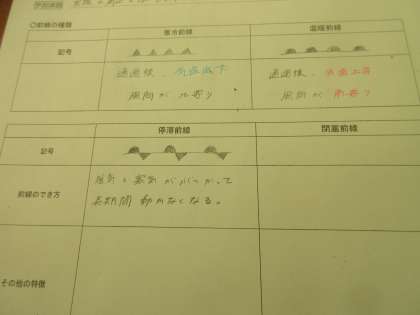 学習課題
○前線の種類
寒冷前線 温暖前線
記号
通過後、気温低下 通過後、気温上昇
風向が北寄り 風向が南寄り
停滞前線 閉塞前線
記号
前線のでき方
暖気と寒気がぶつかって
長期間動かなくなる。
その他の特徴